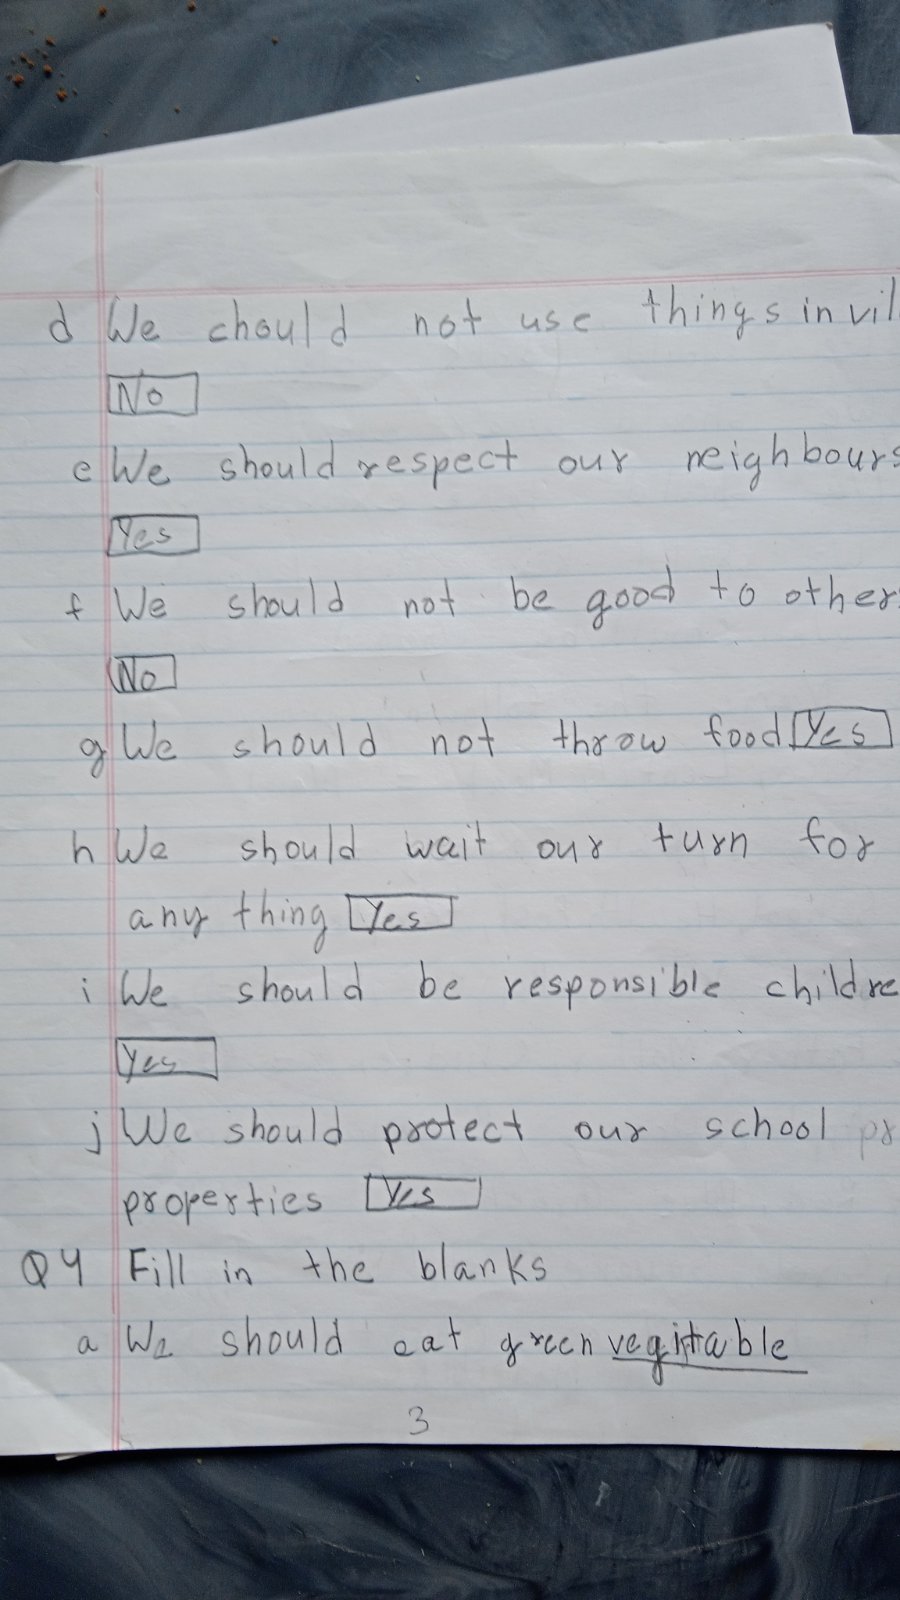 d We chould not use things in vil
No
e We should respect our neighbours
Yes
f We should not be good to others
No
g We should not throw food Yes
h We should wait our turn for
any thing Yes
i We should be responsible childre
Yes
j We should protect our school pr
properties Yes
Q4 Fill in the blanks
a We should eat green vegitable
3